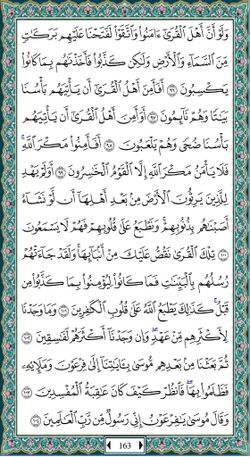 وَلَوْ أَنَّ أَهْلَ ٱلْقُرَىٰٓ ءَامَنُوا۟ وَٱتَّقَوْا۟ لَفَتَحْنَا عَلَيْهِم بَرَكَٰتٍ
مِّنَ ٱلسَّمَآءِ وَٱلْأَرْضِ وَلَٰكِن كَذَّبُوا۟ فَأَخَذْنَٰهُم بِمَا كَانُوا۟
يَكْسِبُونَ ٩٦ أَفَأَمِنَ أَهْلُ ٱلْقُرَىٰٓ أَن يَأْتِيَهُم بَأْسُنَا
بَيَٰتًا وَهُمْ نَآئِمُونَ ٩٧ أَوَأَمِنَ أَهْلُ ٱلْقُرَىٰٓ أَن يَأْتِيَهُم
بَأْسُنَا ضُحًى وَهُمْ يَلْعَبُونَ ٩٨ أَفَأَمِنُوا۟ مَكْرَ ٱللَّهِ ۚ
فَلَا يَأْمَنُ مَكْرَ ٱللَّهِ إِلَّا ٱلْقَوْمُ ٱلْخَٰسِرُونَ ٩٩ أَوَلَمْ يَهْدِ
لِلَّذِينَ يَرِثُونَ ٱلْأَرْضَ مِنۢ بَعْدِ أَهْلِهَآ أَن لَّوْ نَشَآءُ
أَصَبْنَٰهُم بِذُنُوبِهِمْ ۚ وَنَطْبَعُ عَلَىٰ قُلُوبِهِمْ فَهُمْ لَا يَسْمَعُونَ
١٠٠ تِلْكَ ٱلْقُرَىٰ نَقُصُّ عَلَيْكَ مِنْ أَنۢبَآئِهَا ۚ وَلَقَدْ جَآءَتْهُمْ
رُسُلُهُم بِٱلْبَيِّنَٰتِ فَمَا كَانُوا۟ لِيُؤْمِنُوا۟ بِمَا كَذَّبُوا۟ مِن
قَبْلُ ۚ كَذَٰلِكَ يَطْبَعُ ٱللَّهُ عَلَىٰ قُلُوبِ ٱلْكَٰفِرِينَ ١٠١ وَمَا وَجَدْنَا
لِأَكْثَرِهِم مِّنْ عَهْدٍ ۖ وَإِن وَجَدْنَآ أَكْثَرَهُمْ لَفَٰسِقِينَ ١٠٢
ثُمَّ بَعَثْنَا مِنۢ بَعْدِهِم مُّوسَىٰ بِـَٔايَٰتِنَآ إِلَىٰ فِرْعَوْنَ وَمَلَإِي۟هِۦ
فَظَلَمُوا۟ بِهَا ۖ فَٱنظُرْ كَيْفَ كَانَ عَٰقِبَةُ ٱلْمُفْسِدِينَ ١٠٣
وَقَالَ مُوسَىٰ يَٰفِرْعَوْنُ إِنِّى رَسُولٌ مِّن رَّبِّ ٱلْعَٰلَمِينَ ١٠٤
163